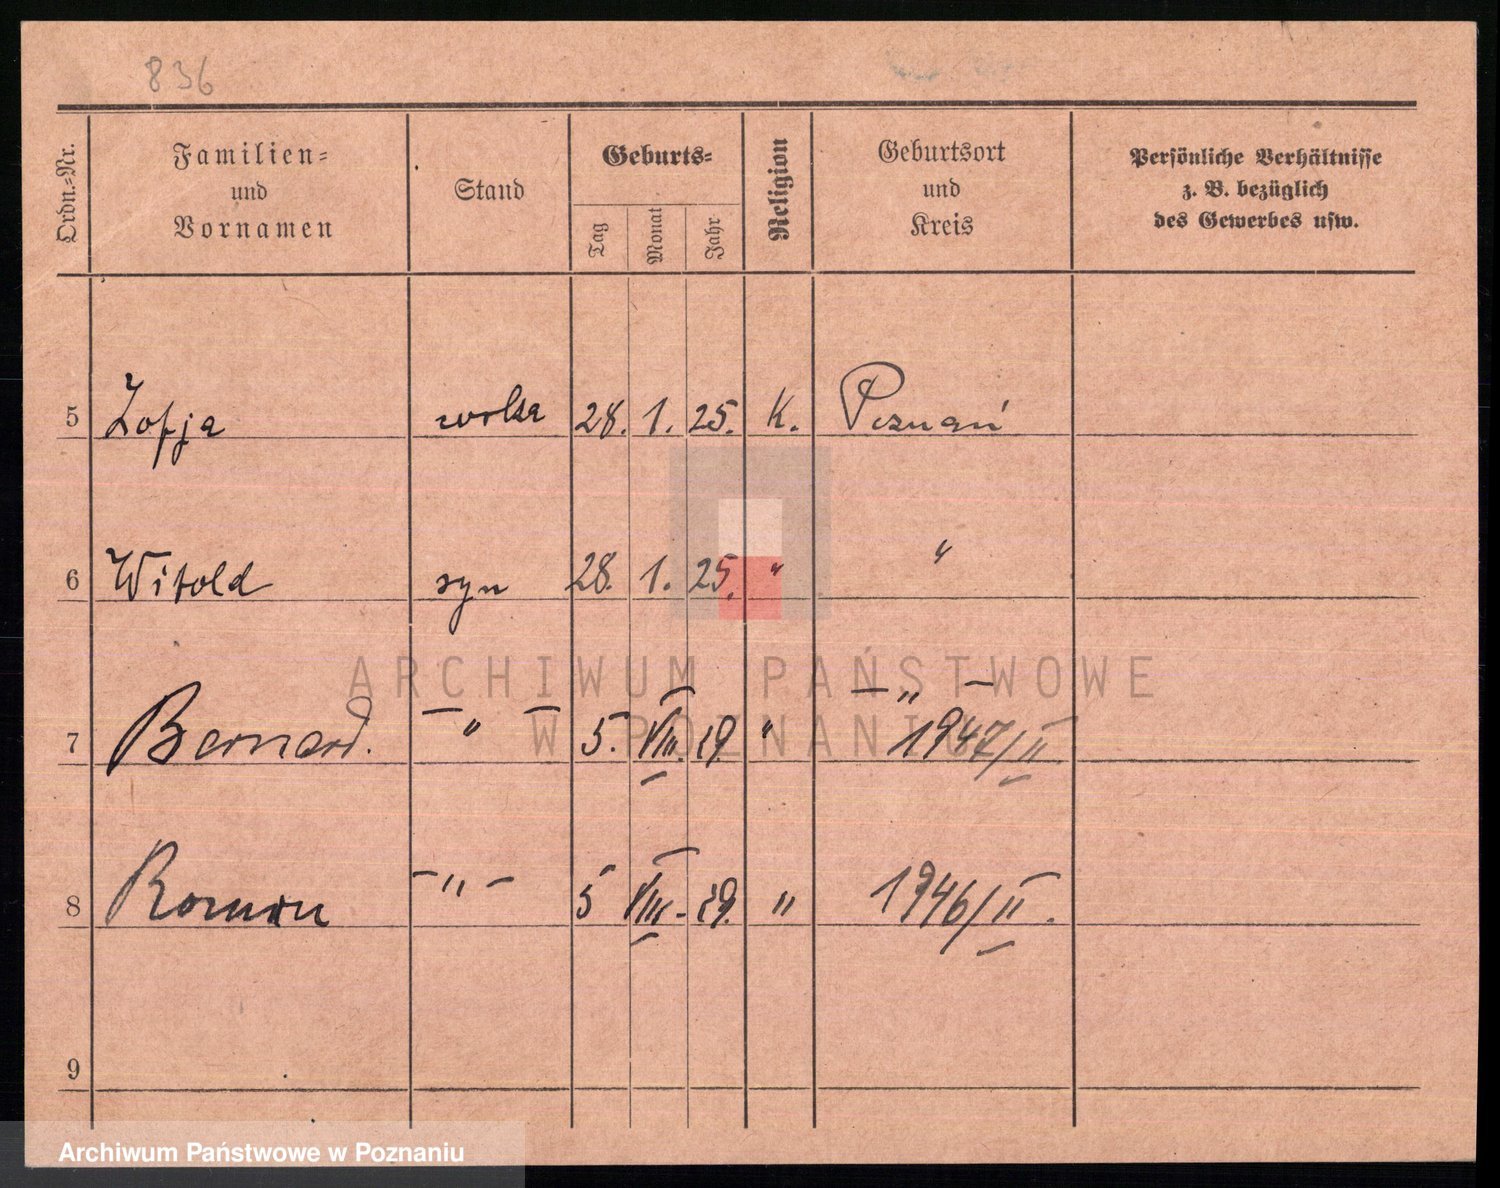 836
Ordn.-Nr.
Familien-
und
Vornamen
Stand
Geburts-
Tag
Monat
Jahr
Religion
Geburtsort
und
Kreis
Persönliche Verhältnisse
z. B. bezüglich
des Gewerbes usw.
5 Zofja 28. 1. 25. K. Poznań
6 Witold syn 28. 1. 25. " "
ARCHIWUM PAŃSTWOWE
W POZNANIU
7 Bernard. — " — 5. VIII. 29. " — " — 1947/II
8 Roman — " — 5 VIII. 29. " 1946/II.
9
Archiwum Państwowe w Poznaniu